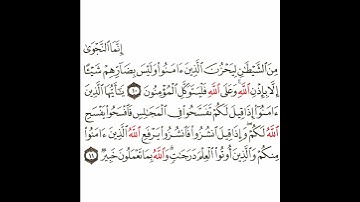 إِنَّمَا ٱلنَّجْوَىٰ
مِنَ ٱلشَّيْطَٰنِ لِيَحْزُنَ ٱلَّذِينَ ءَامَنُوا۟ وَلَيْسَ بِضَآرِّهِمْ شَيْـًٔا
إِلَّا بِإِذْنِ ٱللَّهِ ۚ وَعَلَى ٱللَّهِ فَلْيَتَوَكَّلِ ٱلْمُؤْمِنُونَ ١٠ يَٰٓأَيُّهَا ٱلَّذِينَ
ءَامَنُوٓا۟ إِذَا قِيلَ لَكُمْ تَفَسَّحُوا۟ فِى ٱلْمَجَٰلِسِ فَٱفْسَحُوا۟ يَفْسَحِ
ٱللَّهُ لَكُمْ ۖ وَإِذَا قِيلَ ٱنشُزُوا۟ فَٱنشُزُوا۟ يَرْفَعِ ٱللَّهُ ٱلَّذِينَ ءَامَنُوا۟
مِنكُمْ وَٱلَّذِينَ أُوتُوا۟ ٱلْعِلْمَ دَرَجَٰتٍ ۚ وَٱللَّهُ بِمَا تَعْمَلُونَ خَبِيرٌ ١١